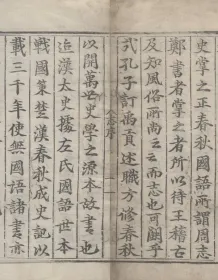 史掌之正春秋國語所謂周志
鄭書者掌之者所以待王稽古
及知風俗所尚云云而志也可闕乎
式孔子訂禹貢述職方修春秋
以開萬世史學之源本故書也
迨漢太史據左氏國語世本
戰國策楚漢春秋成史記以
載三千年使無國語諸書亦